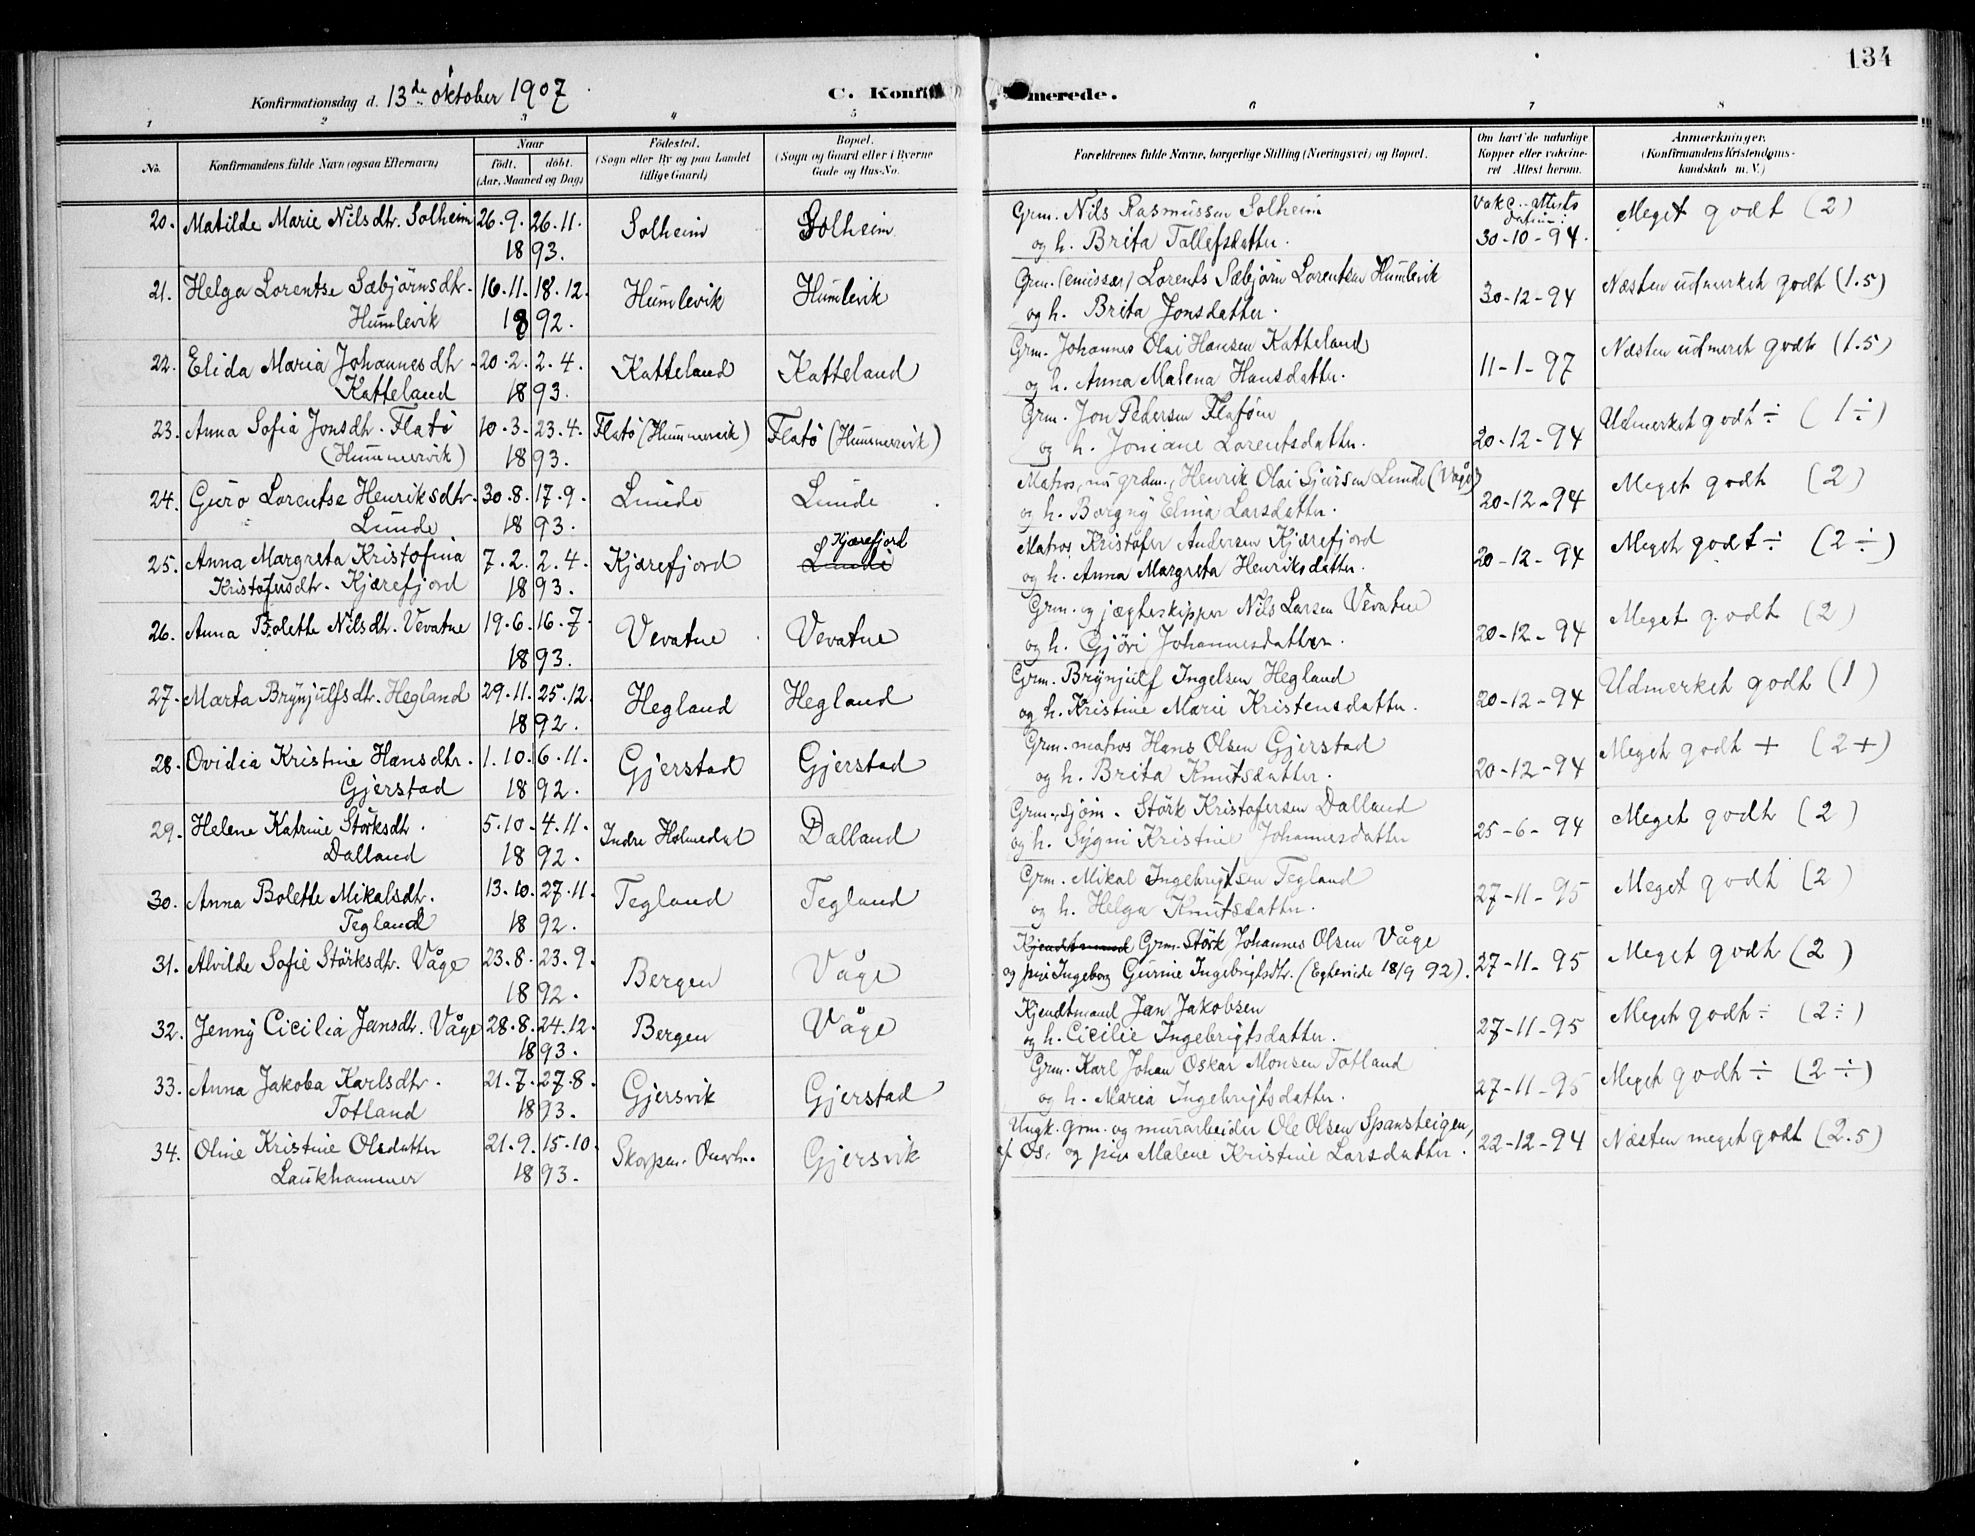 134
Konfirmationsdag d. 13de oktober 1907
C. Konfirmerede.
1 2 3 4 5 6 7 8
No.
Konfirmandens fulde Navn (ogsaa Efternavn)
Naar
født. døbt.
(Aar, Maaned og Dag)
Födested.
(Sogn eller By og paa Landet
tillige Gaard)
Bopæl.
(Sogn og Gaard eller i Byerne
Gade og Hus-No.
Forældrenes fulde Navne, borgerlige Stilling (Næringsvei) og Bopæl.
Om havt de naturlige
Kopper eller vakcine-
ret Attest herom.
Anmærkninger.
(Konfirmandens Kristendoms-
kundskab m. V.)
20. Matilde Marie Nilsdtr. Solheim 26.9. 26.11. Solheim Solheim Grm. Nils Rasmussen Solheim Vakc. attests datum: Meget godt (2)
1893. og h. Brita Tollefsdatter. 30-10-94.
21. Helga Lorentse Sæbjørnsdtr. 16.11. 18.12. Humlevik Humlevik Grm. (emissær) Lorents Sæbjørn Lorentsen Humlevik 30-12-94 Næsten udmerket godt (1.5)
Humlevik 1892. og h. Brita Jonsdatter.
22. Elida Maria Johannesdtr. 20.2. 2.4. Katteland Katteland Grm. Johannes Olai Hansen Katteland 11-1-97 Næsten udmeret godt (1.5)
Katteland 1893. og h. Anna Malena Hansdatter.
23. Anna Sofia Jonsdtr. Flatö 10.3. 23.4. Flatö (Hummervik) Flatö (Hummervik) Grm. Jon Pedersen Flatöen 20-12-94 Udmerket godt ÷ (1÷)
(Hummervik) 1893. og h. Jomane Lorentsdatter.
24. Guro Lorentse Henriksdtr. 30.8. 17.9. Lunde Lunde Matros, nu grdm., Henrik Olai Sjursen Lunde (Våge) 20-12-94 Meget godt (2)
Lunde 1893. og h. Borgny Elina Larsdatter.
25. Anna Margreta Kristofina 7.2. 2.4. Kjærefjord Kjærefjord Lunde Matros Kristofer Andersen Kjærefjord 20-12-94 Meget godt ÷ (2÷)
Kristofersdtr. Kjærefjord 1893. og h. Anna Margreta Henriksdatter.
26. Anna Bolette Nilsdtr. Vevatne 19.6. 16.7. Vevatne Vevatne Grm. og jægteskipper Nils Larsen Vevatne 20-12-94 Meget godt (2)
1893. og h. Gjöri Johannesdatter.
27. Marta Brynjulfsdtr. Hegland 29.11. 25.12. Hegland Hegland Grm. Brynjulf Ingelsen Hegland 20-12-94 Udmerket godt (1)
1892. og h. Kristine Marie Kristensdatter.
28. Ovidia Kristine Hansdtr. 1.10. 6.11. Gjerstad Gjerstad Grm. matros Hans Olsen Gjerstad 20-12-94 Meget godt + (2+)
Gjerstad 1892. og h. Brita Knutsdatter.
29. Helene Katrine Störksdtr. 5.10. 4.11. Indre Holmedal Dalland Grm., sjöm. Störk Kristofersen Dalland 25-6-94 Meget godt (2)
Dalland 1892. og h. Sygni Kristine Johannesdatter
30. Anna Bolette Mikalsdtr. 13.10. 27.11. Tegland Tegland Grm. Mikal Ingebrigtsen Tegland 27-11-95 Meget godt (2)
Tegland 1892. og h. Helga Knutsdatter.
31. Alvilde Sofie Störksdtr. Våge 23.8. 23.9. Bergen Våge Kjendtmand Grm. Störk Johannes Olsen Våge 27-11-95 Meget godt (2)
1892. og pige Ingeborg Gurine Ingebrigtsdtr. (Egteviede 18/9 92).
32. Jenny Cicilia Jansdtr. Våge 28.8. 24.12. Bergen Våge Kjendtmand Jan Jakobsen 27-11-95 Meget godt ÷ (2÷)
1893. og h. Cicilie Ingebrigtsdatter.
33. Anna Jakoba Karlsdtr. 21.7. 27.8. Gjersvik Gjerstad Grm. Karl Johan Oskar Monsen Totland 27-11-95 Meget godt ÷ (2÷)
Totland 1893. og h. Maria Ingebrigtsdatter.
34. Oline Kristine Olsdatter 21.9. 15.10. Skorpen. Gjersvik Ungk. grm. og murarbeider Ole Olsen Spansteigen, 22-12-94 Næsten meget godt (2.5)
Laukhammer 1893. af Os, og pige Malene Kristine Larsdatter.